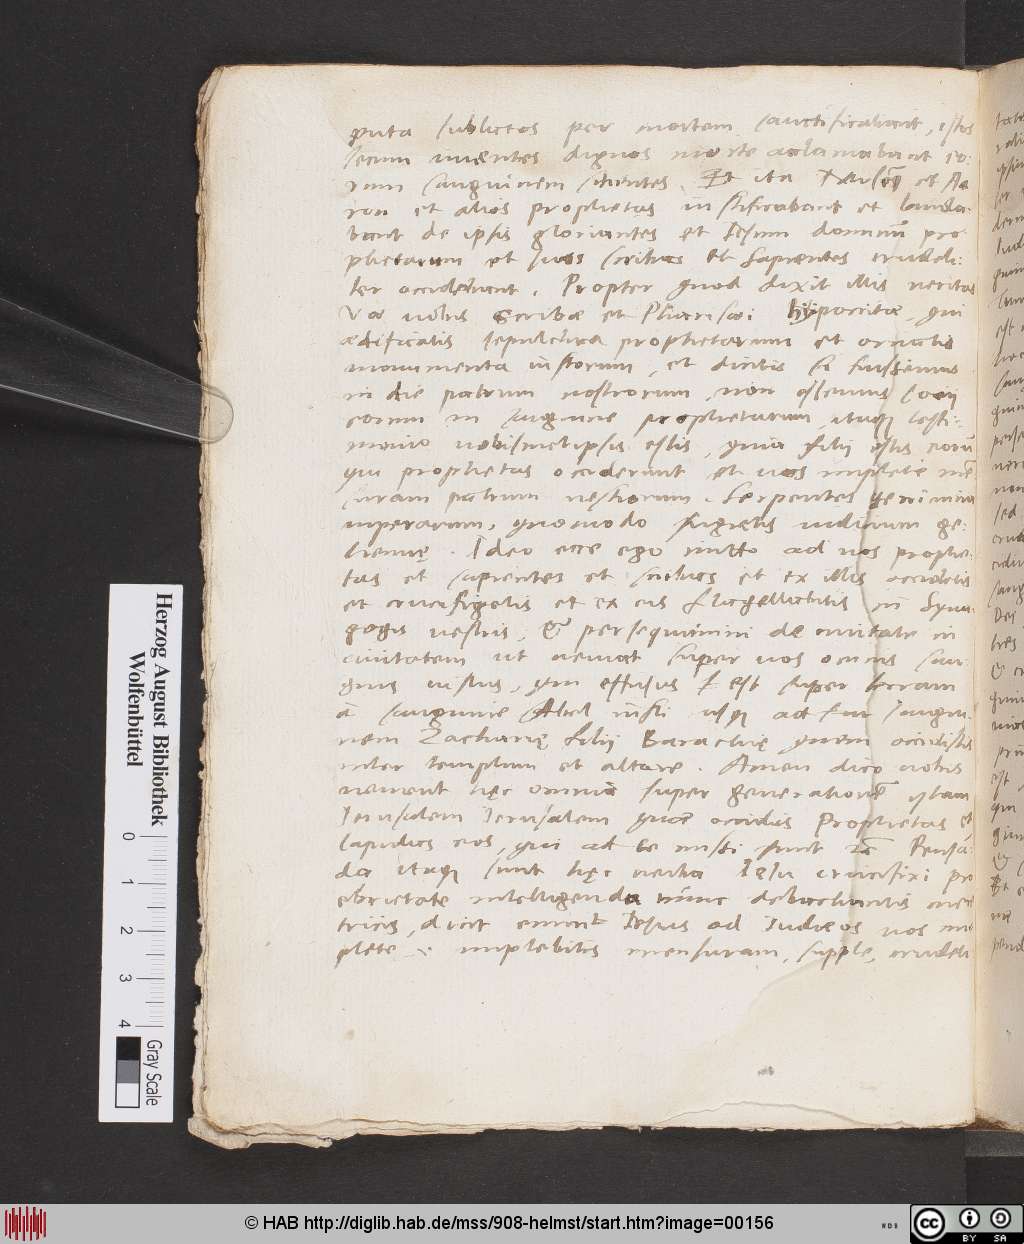 puta sublatos per mortem sanctificabant, istos
secum viventes dignos morte acclamabant eo:
rum sanguinem sitientes. Et ita et Aa
ron et alios prophetas iustificabant et lauda-
bant de ipsis gloriantes et Iesum dominum pro-
phetarum et suos scribas et sapientes crudeli-
ter occiderunt. Propter quod dixit illis veritas
Vae vobis Scribae et Pharisaei hypocritae, qui
aedificatis sepulchra prophetarum et ornatis
monumenta iustorum, et dicitis si fuissemus
in die patrum nostrorum, non essemus socii
eorum in sanguine prophetarum, itaque testi-
monio vobismetipsis estis, quia filii estis eorum
qui prophetas occiderunt et vos implete men
suram patrum vestrorum. Serpentes genimina
viperarum, quomodo fugietis iudicium ge-
hennę. Ideo ecce ego mitto ad vos prophe-
tas et sapientes et scribas et ex illis occidetis
et crucifigetis et ex eis flagellabitis in Syna
gogis vestris, & persequimini de civitate in
civitatem ut veniat super vos omnis san-
guis iustus, qui effusus est super terram
a sanguine Abel iusti usque ad sangui-
nem Zacharię filij Barachię quem occidistis
inter templum et altare. Amen dico vobis
venient hęc omnia super generationem istam
Ierusalem Ierusalem quae occidis Prophetas et
lapidas eos, qui ad te missi sunt Pensan-
da itaque sunt hęc verba Iesu crucifixi pro
ebrietate intelligenda
dicit enim Iesus ad Iudaeos vos im-
plete .i. implebitis mensuram, supple, crudeli
Herzog August Bibliothek
Wolfenbüttel
0 1 2 3 4
Gray Scale
© HAB http://diglib.hab.de/mss/908-helmst/start.htm?image=00156
WDB
cc BY SA